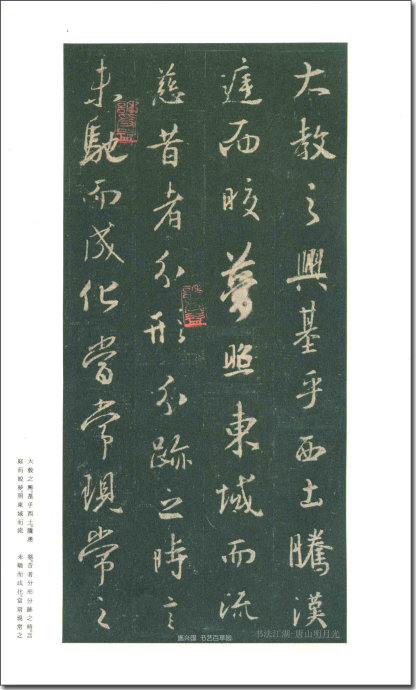 大教之興基乎西土騰漢
庭而皎夢照東域而流
慈昔者分形分跡之時言
未馳而成化當常現常之
大教之興基乎西土騰漢
庭而皎夢照東域而流
慈昔者分形分跡之時言
未馳而成化當常現常之
书艺百草园
书法江湖·唐山明月光